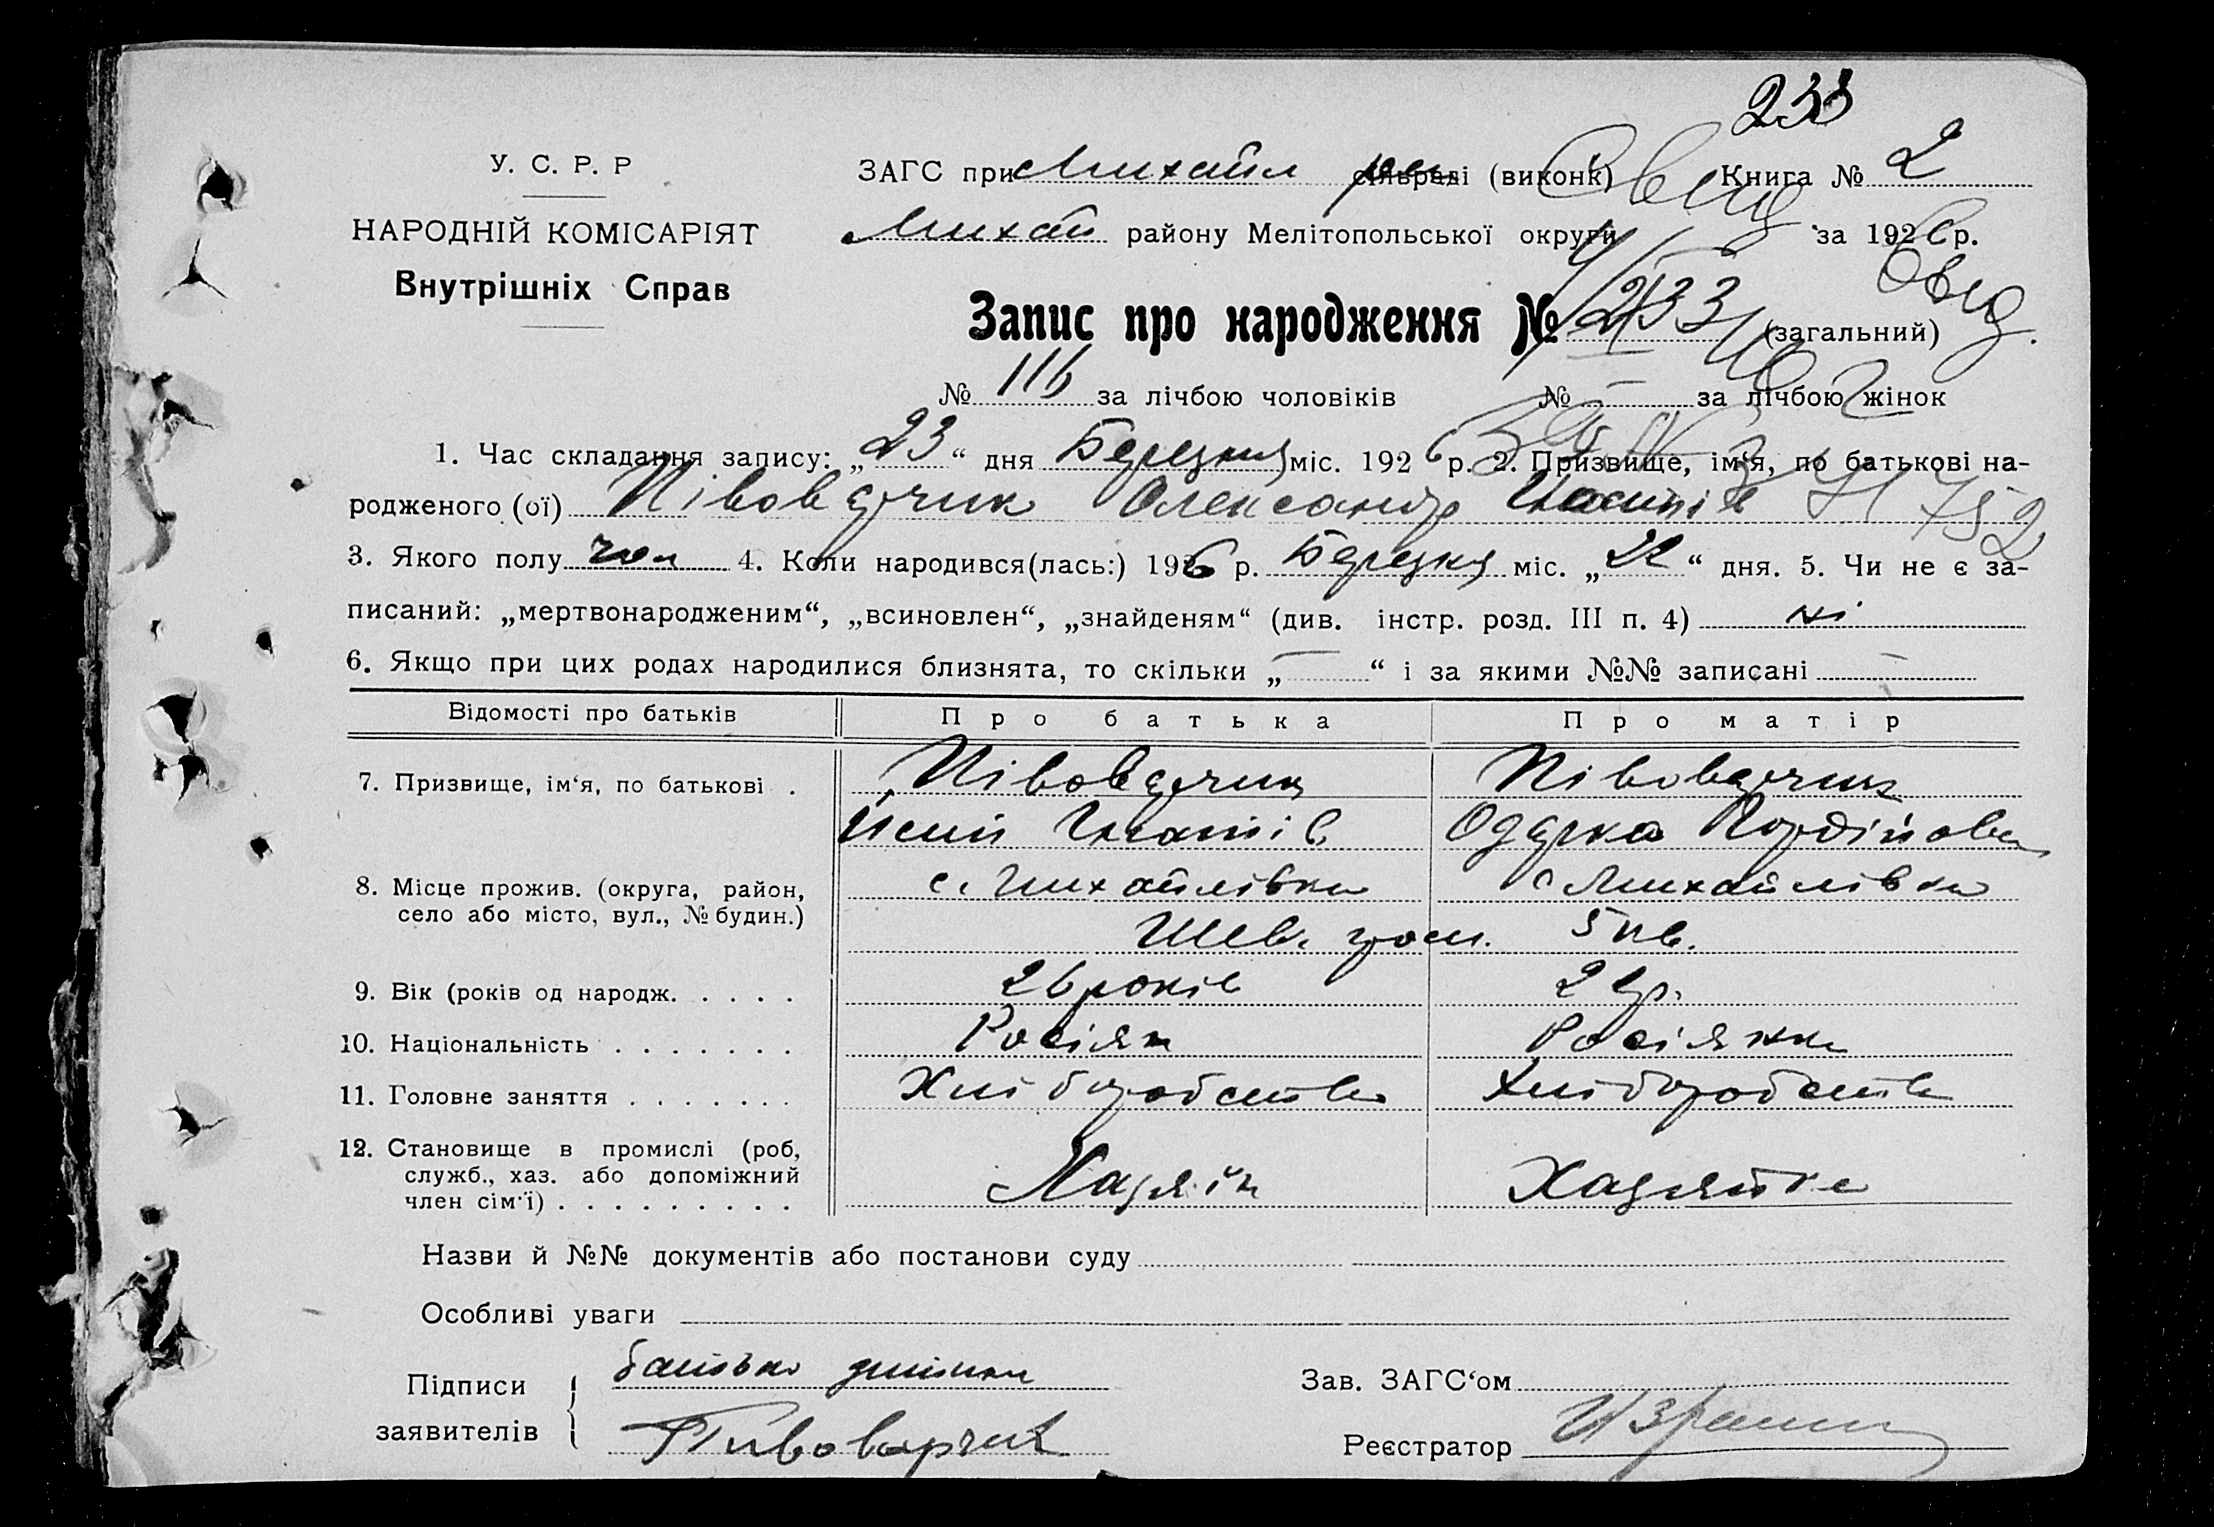 233
У. С. Р. Р
НАРОДНІЙ КОМІСАРІЯТ
Внутрішніх Справ
ЗАГС при Михайл сільраді (виконк) Книга № 2
Михай району Мелітопольської округи за 1926 р.
Запис про народження № 233 (загальний)
№ 116 за лічбою чоловіків № — за лічбою жінок
1. Час складання запису: „23“ дня Березня міс. 1926 р. 2. Призвище, ім‘я, по батькові на-
родженого (ої) Півоварчик Олександр
3. Якого полу чол 4. Коли народився(лась:) 1926 р. Березня міс. „ “ дня. 5. Чи не є за-
писаний: „мертвонародженим“, „всиновлен“, „знайденям“ (див. інстр. розд. III п. 4) ні
6. Якщо при цих родах народилися близнята, то скільки „—“ і за якими №№ записані —
Відомості про батьків Про батька Про матір
7. Призвище, ім‘я, по батькові . Півоварчик Півоварчик
Гнатів Одарка Гордійовна
8. Місце прожив. (округа, район, с. Михайлівка с Михайлівка
село або місто, вул., № будин.) Шев. 5 кв.
9. Вік (років од народж. . . . . 26 років
10. Національність . . . . . . . Росіян Росіянка
11. Головне заняття . . . . . . . Хліборобство Хліборобств
12. Становище в промислі (роб, Хазяїн Хазяйка
служб., хаз. або допоміжний
член сім‘ї) . . . . . . . . .
Назви й №№ документів або постанови суду
Особливі уваги
Підписи батько дитини Зав. ЗАГС‘ом
заявителів Пивоварчик Реєстратор